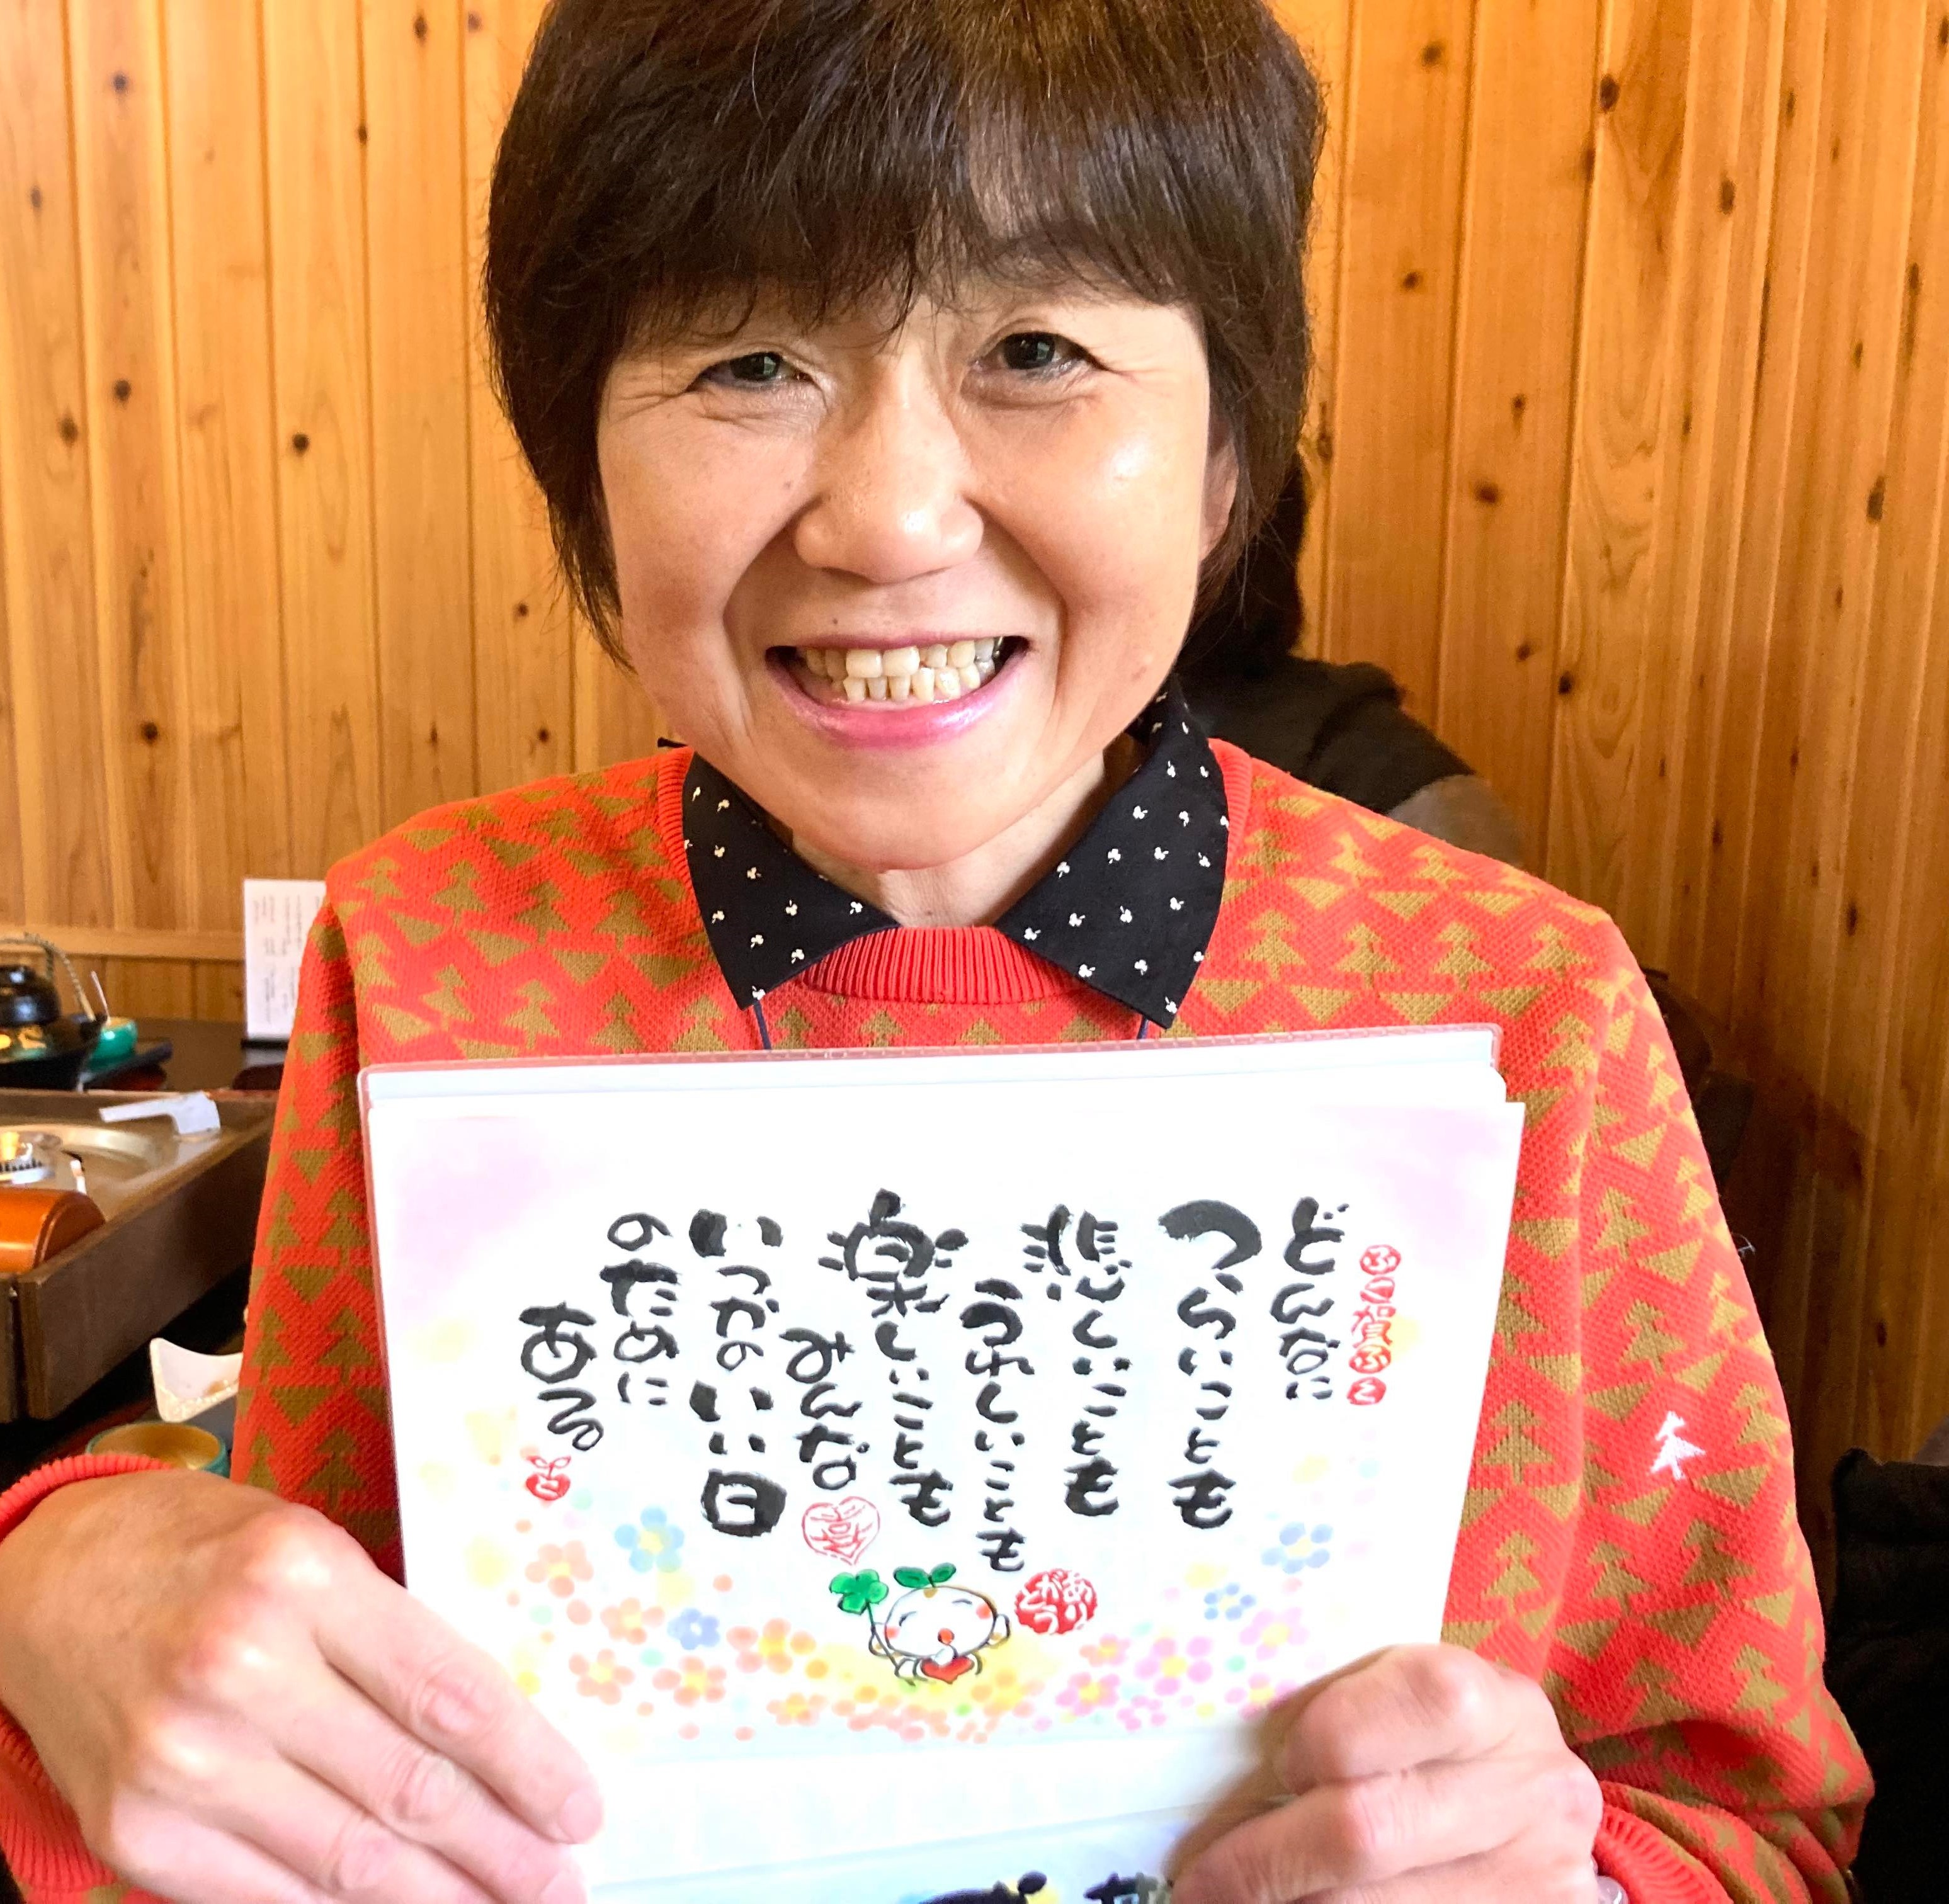 どんなに
つらいことも
悲しいことも
うれしいことも
楽しいことも
みんな
いつかのいい日
のために
ある
ありがとう